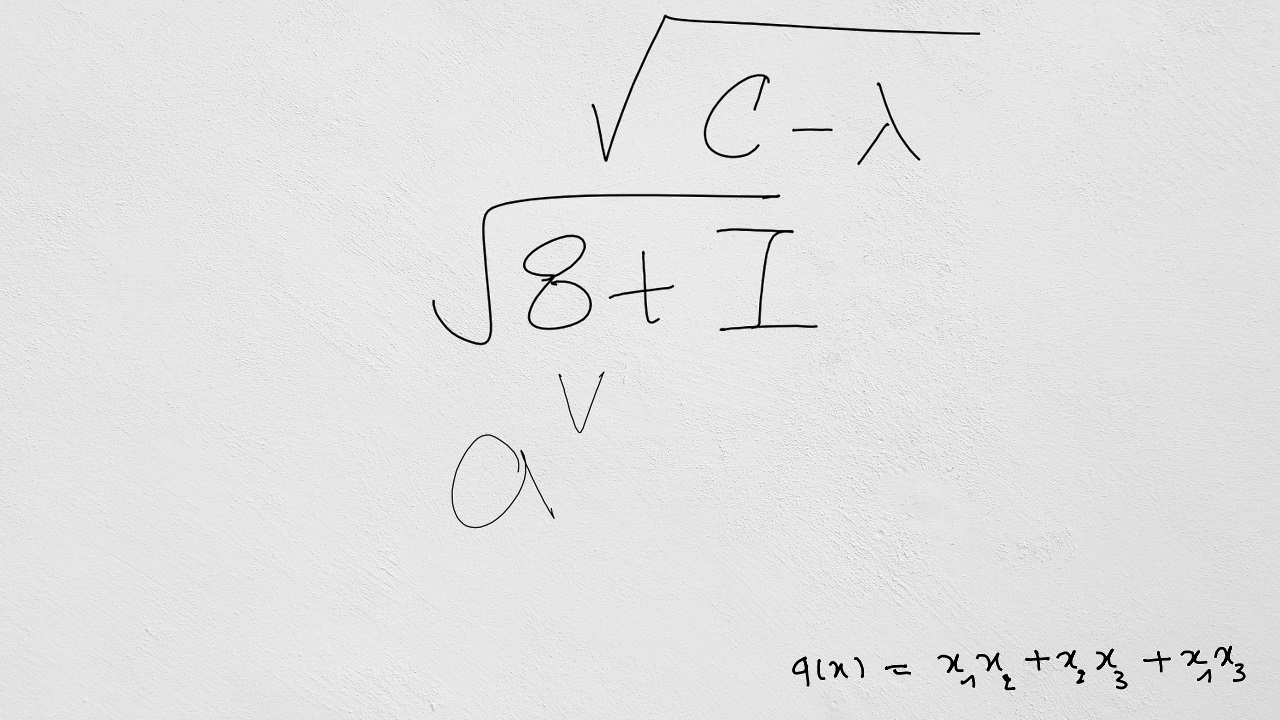 √(C - λ)
√(8 + I)
a^v
q(x) = x₁x₂ + x₂x₃ + x₁x₃